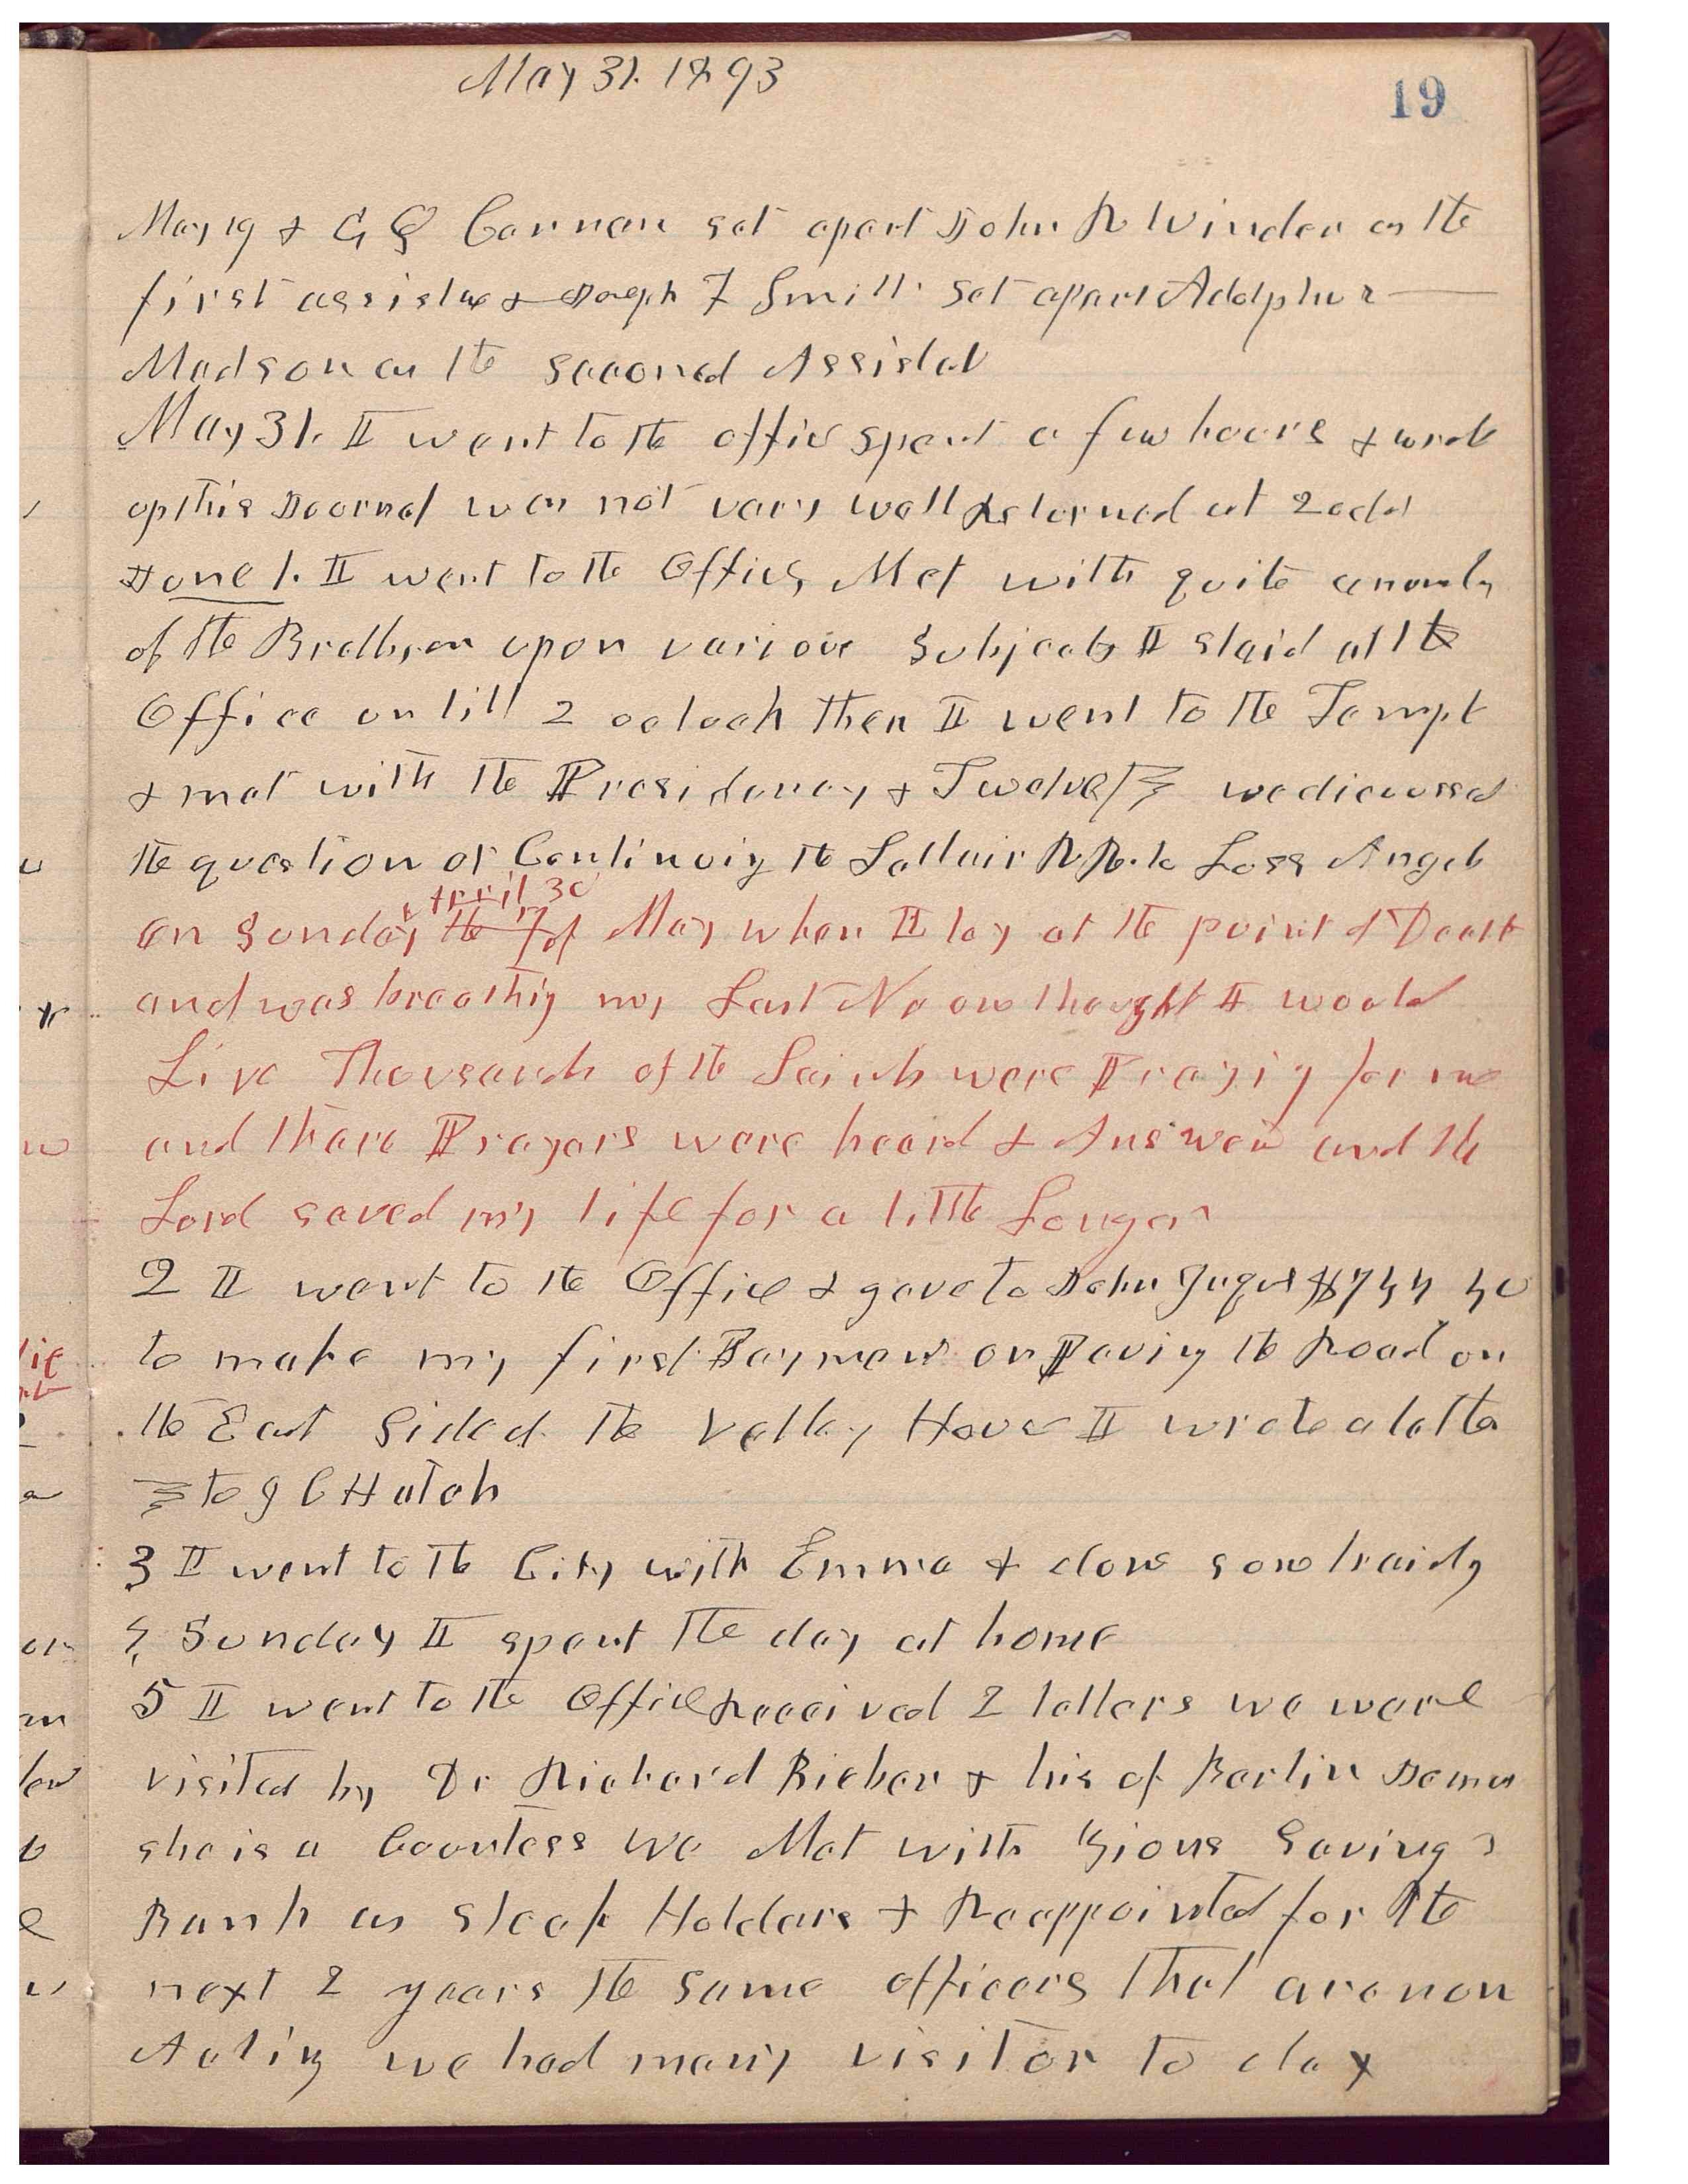 May 31. 1893
19
May 19 & G Q Cannon set apart John R Winder as the
first assistant & Joseph F Smith set apart Adolphus
Madson as the second Assistat
May 31. I went to the office spent a few hours & wrote
up this Journal was not very well Returned at 2 oclok
June 1. I went to the Office, Met with quite a number
of the Brethren upon various Subjects I staid at the
Office untill 2 oclock then I went to the Tempt
& met with the Presidency & Twelve we discussed
the question of Continuing the Saltair R R. to Loss Angels
April 30
on Sunday & the 7 of May when I lay at the point of Death
and was breathing my Last No one thought I would
Live Thousands of the Saints were Praying for me
and there Prayers were heard & Answerd and the
Lord saved my life for a little Longer
2 I went to the Office & gave to John $744 40
to make my first Payment on Paving the Road on
the East Side of the Valley House I wrote a letter
to J C Hatch
3 I went to the City with Emma & done some traidg
4 Sunday I spent the day at home
5 I went to the Office Received 2 letters we were
visited by Dr Richard Rieber & his of Berlin
she is a Countess We Met with Zions Savings
Bank as Stock Holders & Reappointed for the
next 2 years the same officers that are now
Acting we had many visitor to day